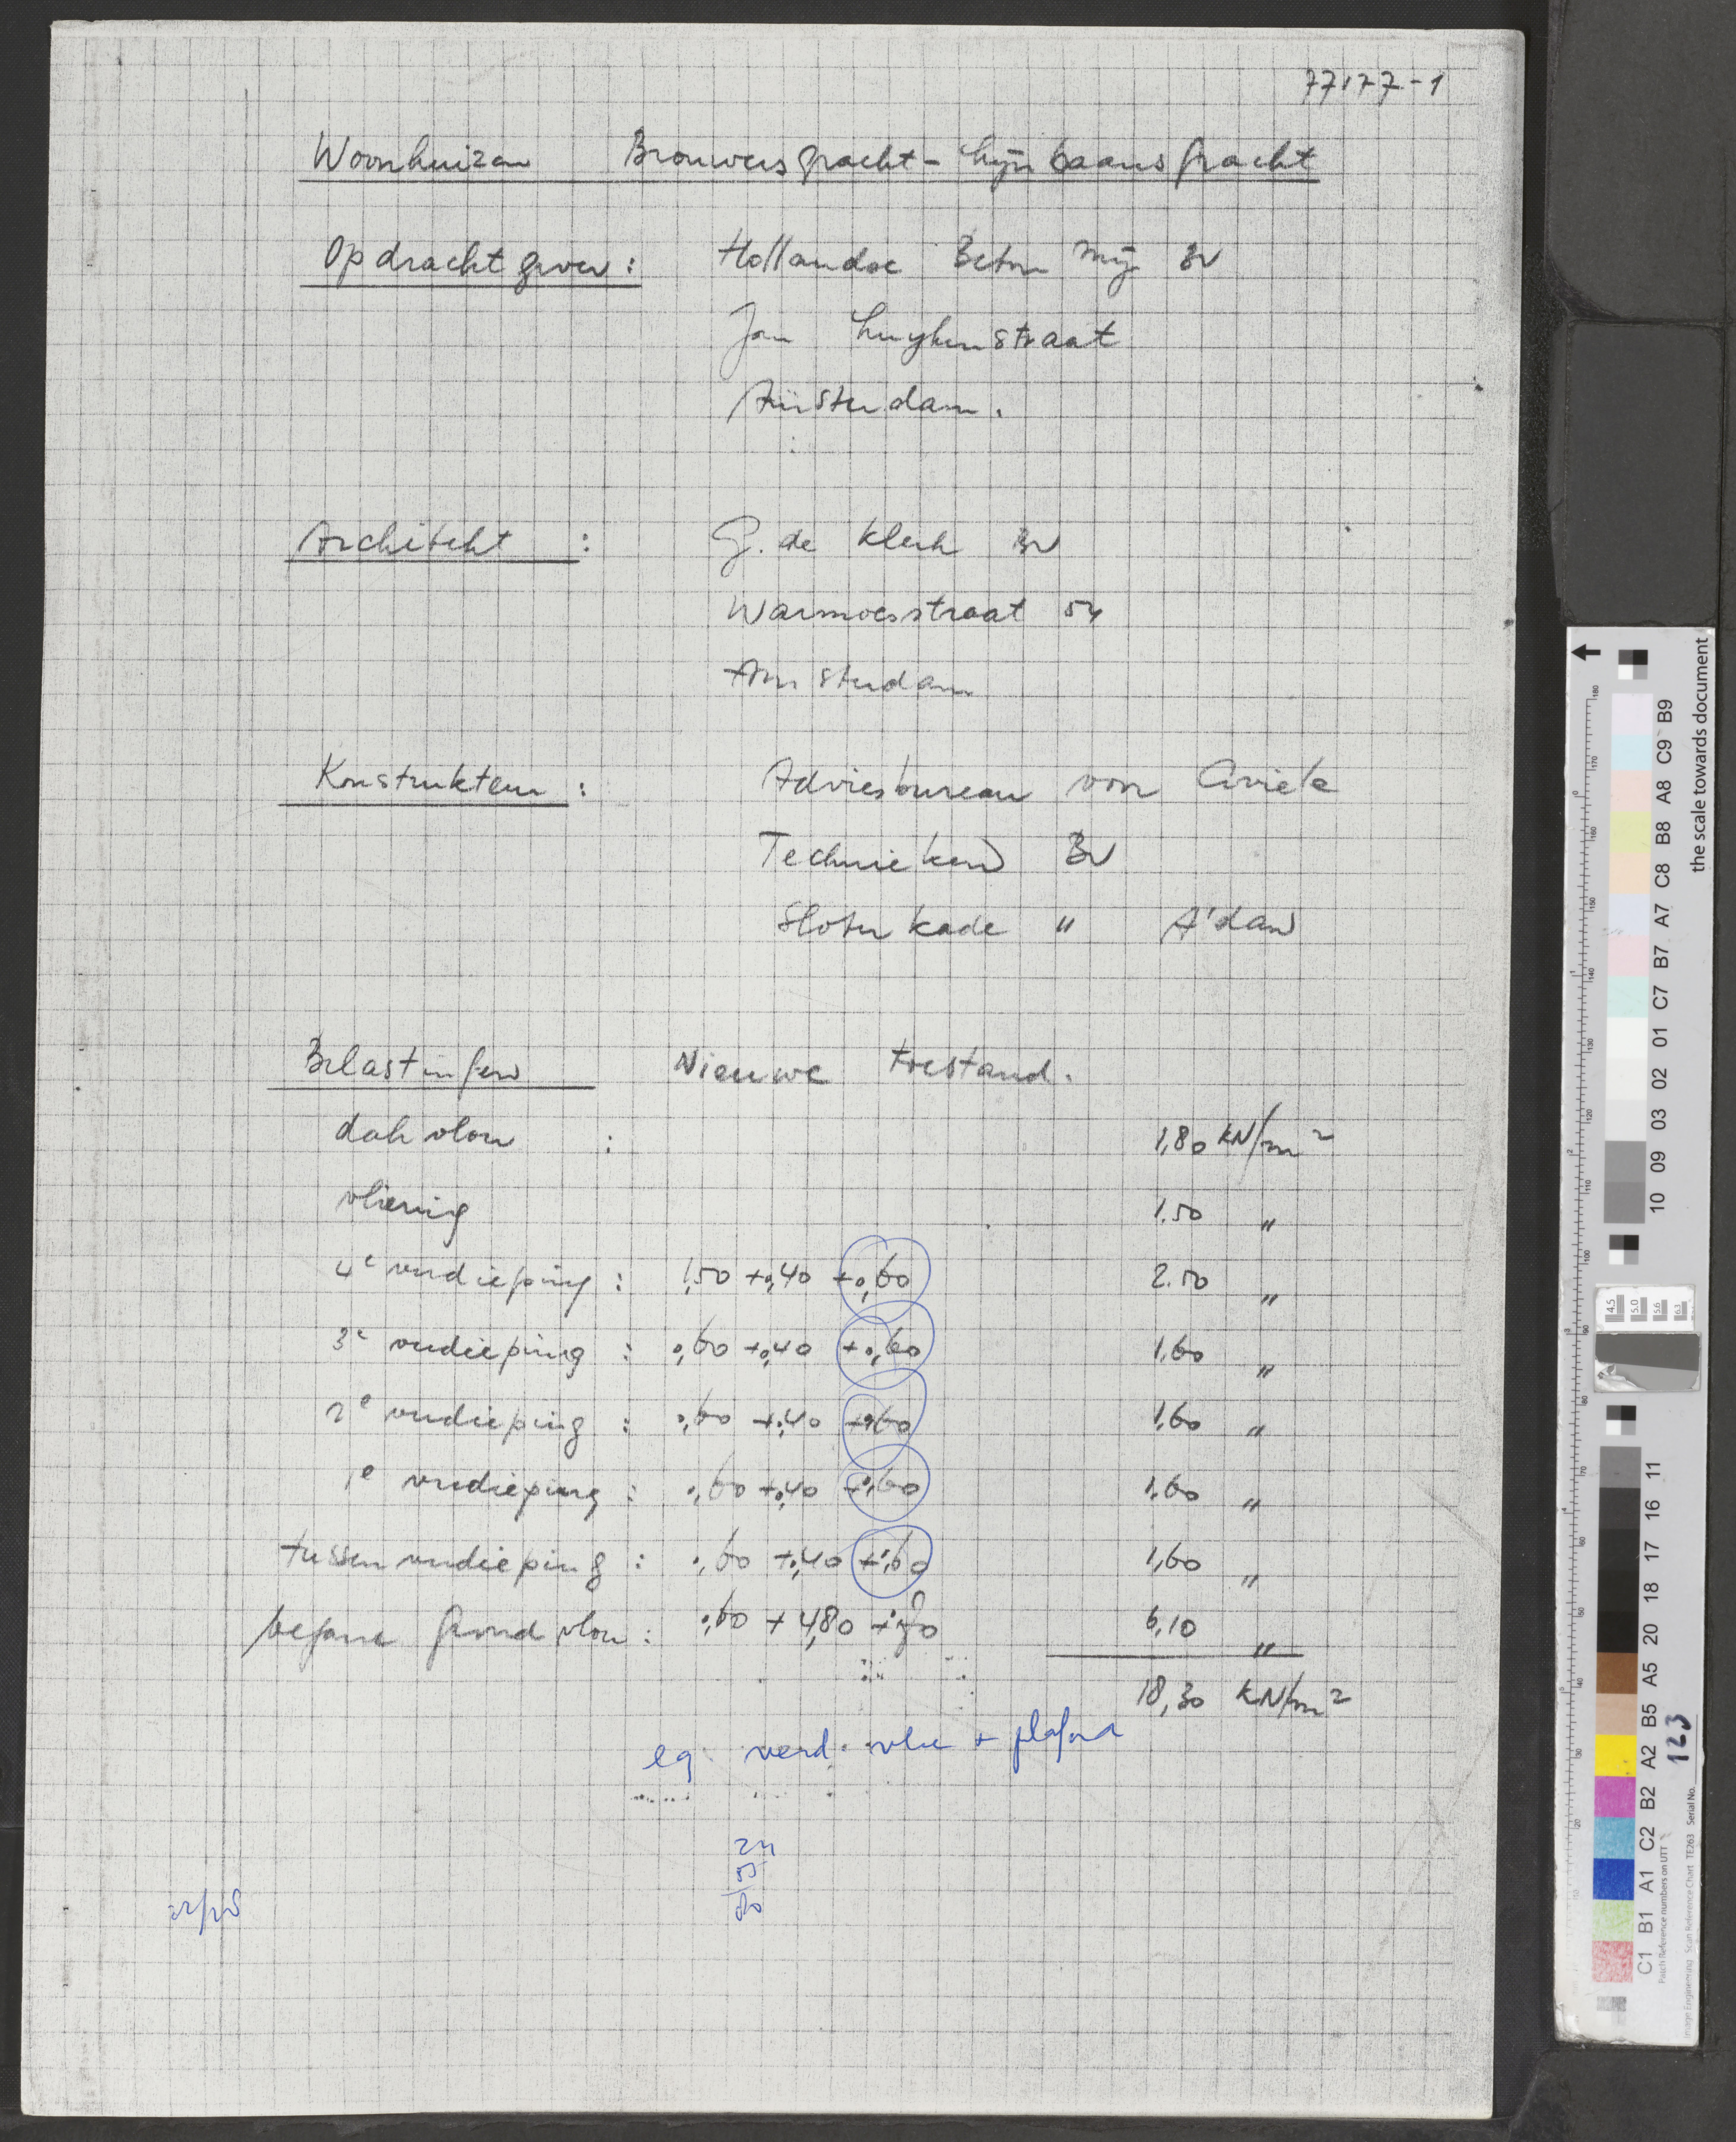 77177-1
Woonhuizen Brouwersgracht - Lijnbaansgracht
Opdrachtgever : Hollandse Beton Mij BV
Jan Luykenstraat
Amsterdam.
Architekt : G. de Klerk BV
Warmoesstraat 54
Amsterdam
Konstrukteur : Adviesbureau voor Civiele
Technieken BV
Sloterkade " A'dam
Belastingen Nieuwe toestand.
dakvloer : 1,80 kN/m²
vliering 1.50 "
4e verdieping : 1,50 + 0,40 + 0,60 2.50 "
3e verdieping : 0,60 + 0,40 + 0,60 1,60 "
2e verdieping : 0,60 + 0,40 + 0,60 1,60 "
1e verdieping : 0,60 + 0,40 + 0,60 1,60 "
tussenverdieping : 0,60 + 0,40 + 0,60 1,60 "
begane grondvloer : 0,60 + 4,80 + 6,10 "
18,30 kN/m²
eg verd. vloer + plafond
24
the scale towards document
B9 C9 A8 B8 C8 A7 B7 C7 01 02 03 09 10
11 16 17 18 20 A5 B5 A2 B2 C2 A1 B1 C1
123
Patch Reference numbers on UTT
Image Engineering Scan Reference Chart TE263 Serial No.